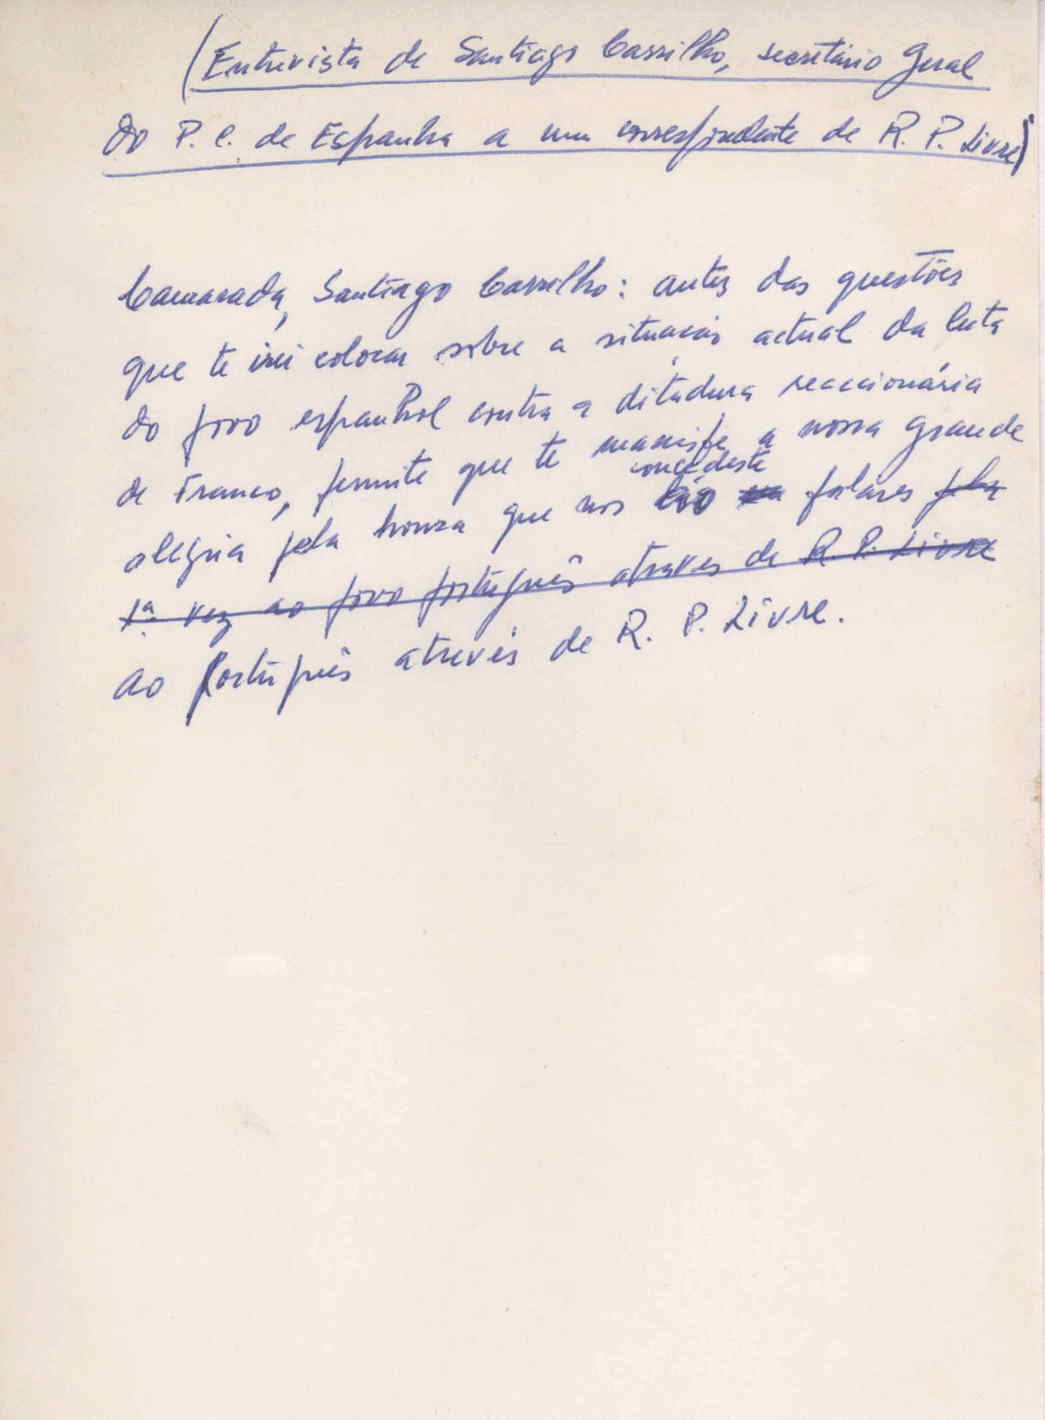 (Entrevista de Santiago Carrilho, secretário Geral
do P. C. de Espanha a um correspondente de R. P. Livre)
Camarada, Santiago Carrilho: antes das questões
que te irei colocar sobre a situação actual da luta
do povo espanhol contra a ditadura reaccionária
de Franco, permite que te manisfe a nossa grande
concedeste
alegria pela honra que nos falares pela
1ª vez ao povo português atraves de R. P. Livre
ao português através de R. P. Livre.